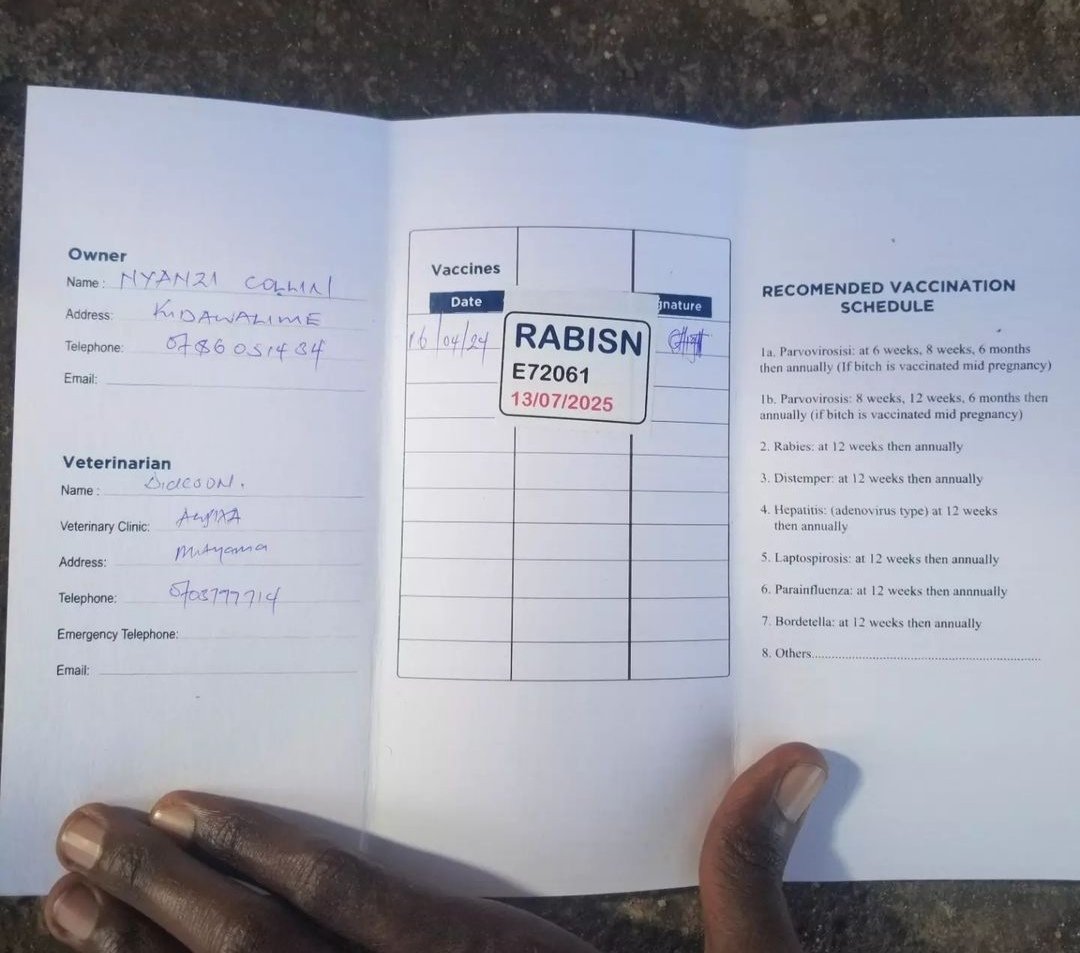 Owner
Name: NYANZI
Address: KIDAWALIME
Telephone: 0786 051484
Email:
Veterinarian
Name:
Veterinary Clinic:
Address: Mityana
Telephone: 0703777714
Emergency Telephone:
Email:
Vaccines
Date
gnature
16/04/24
RABISN
E72061
13/07/2025
RECOMENDED VACCINATION
SCHEDULE
1a. Parvovirosisi: at 6 weeks, 8 weeks, 6 months
then annually (If bitch is vaccinated mid pregnancy)
1b. Parvovirosis: 8 weeks, 12 weeks, 6 months then
annually (if bitch is vaccinated mid pregnancy)
2. Rabies: at 12 weeks then annually
3. Distemper: at 12 weeks then annually
4. Hepatitis: (adenovirus type) at 12 weeks
then annually
5. Laptospirosis: at 12 weeks then annually
6. Parainfluenza: at 12 weeks then annnually
7. Bordetella: at 12 weeks then annually
8. Others